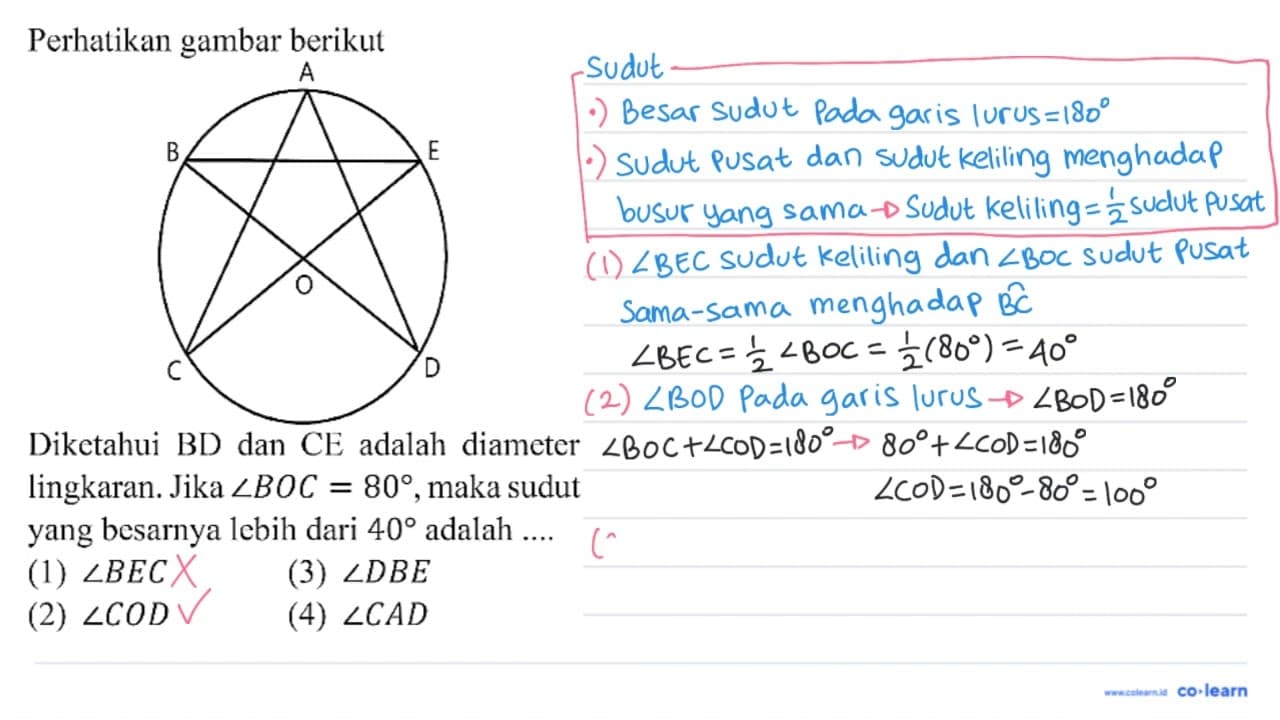 Perhatikan gambar berikut
A
B
E
O
C
D
Diketahui BD dan CE adalah diameter
lingkaran. Jika ∠BOC = 80°, maka sudut
yang besarnya lebih dari 40° adalah ....
(1) ∠BEC X (3) ∠DBE
(2) ∠COD ✓ (4) ∠CAD
Sudut
•) Besar sudut Pada garis lurus=180°
•) Sudut Pusat dan sudut keliling menghadap
busur yang sama → Sudut keliling = 1/2 sudut Pusat
(1) ∠BEC sudut keliling dan ∠BOC sudut Pusat
Sama-sama menghadap B͡C
∠BEC = 1/2 ∠BOC = 1/2 (80°) = 40°
(2) ∠BOD Pada garis lurus → ∠BOD = 180°
∠BOC + ∠COD = 180° → 80° + ∠COD = 180°
∠COD = 180° - 80° = 100°
(
www.colearn.id co•learn